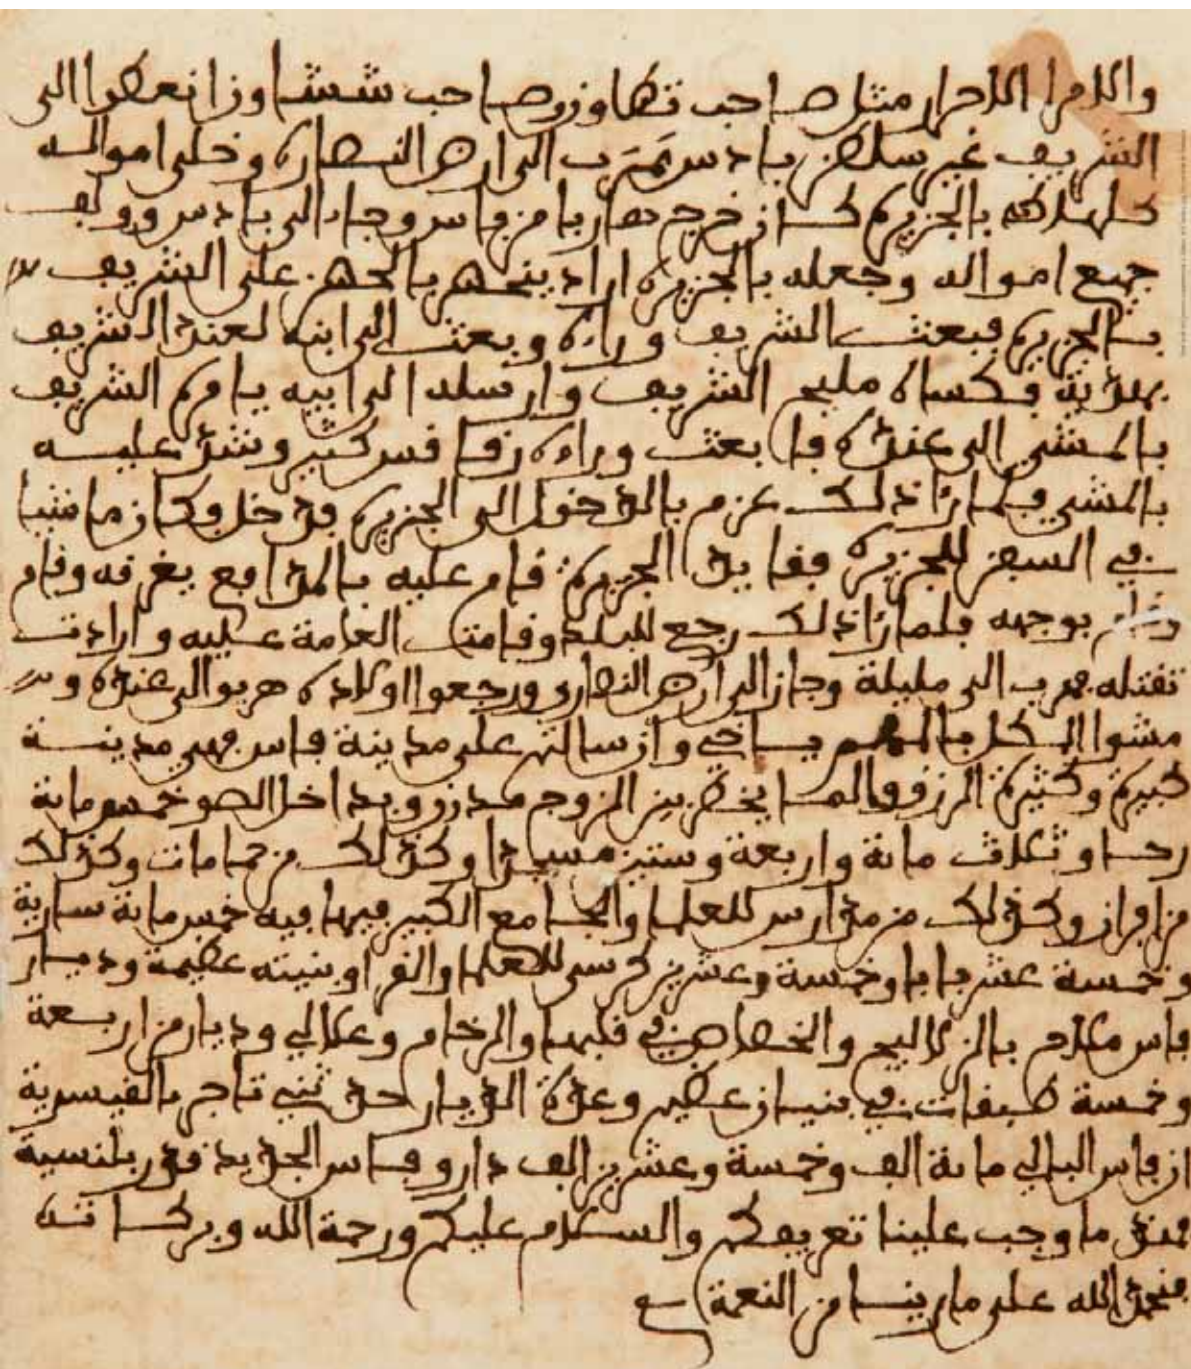 والامرا الاحرار مثل صاحب تطاوزوصاحب شفشاوزانعطوا الى
الشريف غير سلطن بادس هرب الى ارض النصاره وخلى امواله
كلها لانه بالجزيرة كان خرج هاربا من فاس وجاء الى بادس ورفد
جميع امواله وجعله بالجزيره اراد ينحصر بالحصن على الشريف
بالجزيرة فبعث الشريف وراءه وبعث الى ابنه لعند الشريف
بهدية فكساه مليح الشريف وارسله الى ابيه يامره الشريف
بالمشي الى عنده فا بعث وراءه زفا فس كثير وشد عليه
بالمشي فلما راا ذلك عزم بالدخول الى الجزيره فدخل وكان ماشيا
في السفن للجزيره فقايد الجزيرة قام عليه بالمدافع يغرقه وقام
وقام بوجهه فلما راا ذلك رجع للبلد وقامت العامة عليه وارادت
تقتله هرب الى مليلة وجاز الى ارض النصارو ورجعوا اولاده هربوا الى عنده و
مشوا الكل بالهم ياخي وان سالت على مدينة فاس فهي مدينة
كبيرة وكثيرة الرزق والما يخطر بين الزوج مدن وبداخل الصو خمسوماية
رحا وثلاث ماية واربعة وستين مسجدا وكذلك من حمامات وكذلك
من افران وكذلك من مدارس للعلما والجامع الكبير فيها فيه خمس ماية سارية
وخمسة عشر بابا وخمسة وعشرين كرسي للعلما والقرا وبنيته عظيمة وديار
فاس ملاح بالزلاليج والخصاص في قلبها والرخام وعلالي وديار من اربعة
وخمسة طبقات في بنيان عظيم وعدة الديار حدثني تاجر بالقيسرية
ان فاس البالي ماية الف وخمسة وعشرين الف دار وفاس الجديد قدر بلنسية
فهذ ما وجب علينا تعريفكم والسلام عليكم ورحمة الله وبركاته
فنحمد الله على ما رينا من النعمة